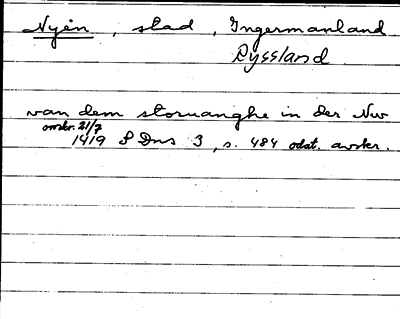 Nyen, stad, Ingermanland
Ryssland
van dem storuanghe in der Nw
omkr. 21/7
1419 SDns 3, s. 484 odat. avskr.